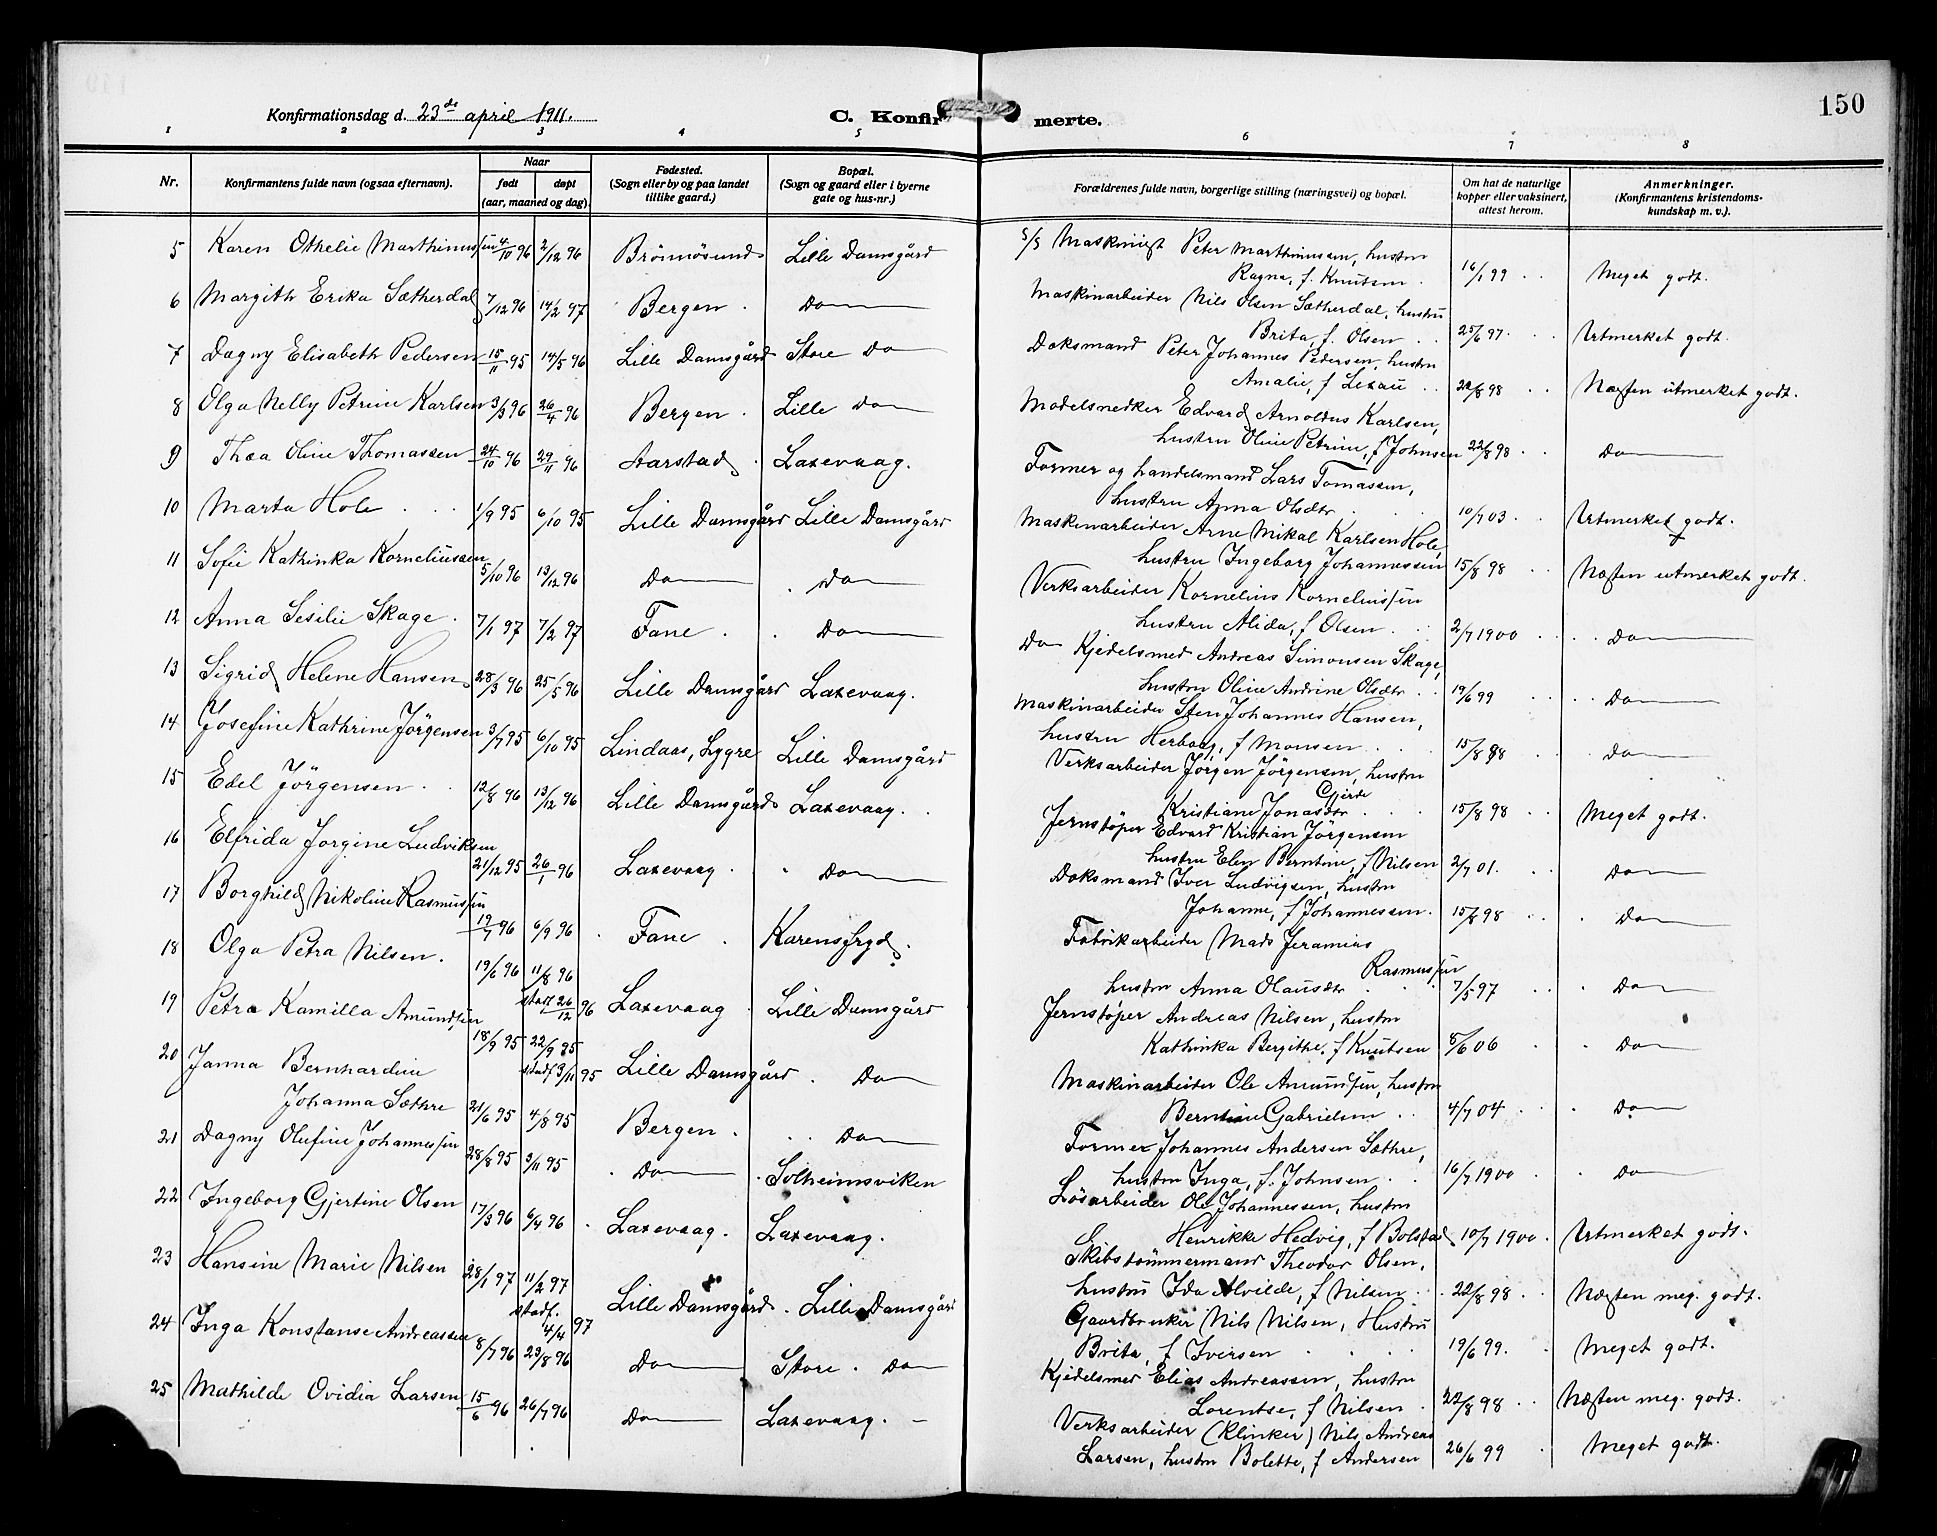 Konfirmationsdag d. 23de april 1911.
C. Konfirmerte.
150
1 2 3 4 5 6 7 8
Nr.
Konfirmantens fulde navn (ogsaa efternavn).
Naar
født døpt
(aar, maaned og dag).
Fødested.
(Sogn eller by og paa landet
tillike gaard.)
Bopæl.
(Sogn og gaard eller i byerne
gate og hus-nr.)
Forældrenes fulde navn, borgerlige stilling (næringsvei) og bopæl.
Om hat de naturlige
kopper eller vaksinert,
attest herom.
Anmerkninger.
(Konfirmantens kristendoms-
kundskap m. v.).
5 Karen Othelie Marthinussen 4/10 96 2/12 96 Brönnösund Lille Damsgård
S/S Maskinist Peter Marthinussen, hustru
Ragna, f. Knutsen 16/1 99 Meget godt.
6 Margith Erika Sætherdal 7/12 96 14/2 97 Bergen Do
Maskinarbeider Nils Olsen Sætherdal, hustru
Brita, f. Olsen 25/6 97 Utmerket godt.
7 Dagny Elisabeth Pedersen 15/11 95 14/5 96 Lille Damsgård Store Do
Doksmand Peter Johannes Pedersen, hustru
Amalie, f Lexau 22/8 98 Næsten utmerket godt.
8 Olga Nelly Petrine Karlsen 3/3 96 26/4 96 Bergen Lille Do
Modelsnedker Edvard Arnoldus Karlsen,
hustru Oline Petrine, f Johnsen 22/8 98 Do
9 Thea Oline Thomassen 24/10 96 29/11 96 Aarstad Laxevaag.
Former og handelsmand Lars Tomassen,
hustru Anna Olsdtr 10/7 03 Utmerket godt.
10 Marta Hole 1/9 95 6/10 95 Lille Damsgård Lille Damsgård
Maskinarbeider Arne Mikal Karlsen Hole,
hustru Ingeborg Johannessen 15/8 98 Næsten utmerket godt.
11 Sofie Kathinka Korneliussen 5/10 96 13/12 96 Do Do
Verksarbeider Kornelius Korneliussen
hustru Alida, f Olsen 2/7 1900 Do
12 Anna Sesilie Skage 7/1 97 7/2 97 Fane Do
Do Kjedelsmed Andreas Simonsen Skage,
hustru Oline Andrine Olsdtr 19/6 99 Do
13 Sigrid Helene Hansen 28/3 96 25/5 96 Lille Damsgård Laxevaag.
Maskinarbeider Sten Johannes Hansen,
hustru Herborg, f Monsen 15/8 98 Do
14 Josefine Kathrine Jörgensen 3/7 95 6/10 95 Lindaas, Lygre Lille Damsgård
Verksarbeider Jörgen Jörgensen, hustru
Gjerde
Kristiane Jonasdtr 15/8 98 Meget godt.
15 Edel Jörgensen 12/8 96 13/12 96 Lille Damsgård Laxevaag.
Jernstöper Edvard Kristian Jörgensen
hustru Elen Berntine, f Nilsen 2/7 01. Do
16 Elfrida Jorgine Ludviksen 21/12 95 26/1 96 Laxevaag Do
Doksmand Iver Ludvigsen, hustru
Johanne, f Johannessen 15/8 98 Do
17 Borghild Nikoline Rasmussen 19/7 96 6/9 96 Fane Karensfryd
Fabrikarbeider Mads Jeramias
Rasmussen
hustru Anna Olausdtr 7/5 97 Do
18 Olga Petra Nilsen. 19/6 96 11/8 96 stadf 26/12 96 Laxevaag Lille Damsgård
Jernstöper Andreas Nilsen, hustru
Kathinka Bergithe, f Knutsen 8/6 06 Do
19 Petra Kamilla Amundsen 18/9 95 22/9 95 stadf 3/11 95 Lille Damsgård Do
Maskinarbeider Ole Amundsen, hustru
Berntine Gabrielsen 4/7 04 Do
20 Janna Bernhardine
Johanna Sæthre 21/6 95 4/8 95 Bergen Do
Former Johannes Andersen Sæthre,
hustru Inga, f. Johnsen 16/7 1900 Do
21 Dagny Olufine Johannessen 28/8 95 3/11 95 Do Solheimsviken
Lösarbeider Ole Johannessen, hustru
Henrikke Hedvig, f Bolstad 10/7 1900 Utmerket godt.
22 Ingeborg Gjertine Olsen 17/3 96 6/4 96 Laxevaag Laxevaag.
Skibstömmermand Theodor Olsen,
hustru Ida Alvilde, f Nilsen 22/8 98 Næsten meg. godt.
23 Hansine Marie Nilsen 28/1 97 11/2 97 stadf. 4/4 97 Lille Damsgård Lille Damsgård
Gaardbruker Nils Nilsen, Hustru
Brita, f Iversen 19/6 99. Meget godt.
24 Inga Konstanse Andreassen 8/7 96 23/8 96 Do Store Do
Kjedelsmed Elias Andreassen, hustru
Lorentse, f Nilsen 22/8 98 Næsten meg. godt.
25 Mathilde Ovidia Larsen 15/6 96 26/7 96 Do Laxevaag.
Verksarbeider (Klinker) Nils Andreas
Larsen, hustru Bolette, f Andersen 26/6 99 Meget godt.